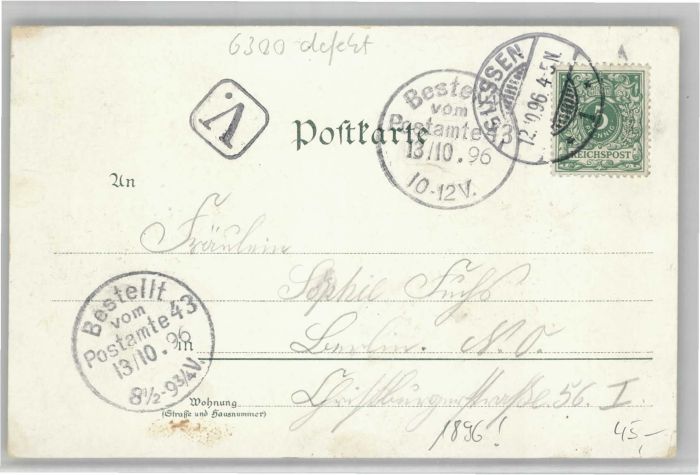 6300 defekt
GIESSEN
12.10.96. 4-5N.
* 1 *
5
REICHSPOST
Bestellt
vom
Postamte 43
13/10.96
10-12V.
V.
Postkarte
An
Fräulein
Sophie Fuchs
in Berlin. N. O.
Bestellt
vom
Postamte 43
13/10.96
8½-9¾V.
Wohnung
(Straße und Hausnummer)
Christburgerstraße 56. I.
1896!
45,-